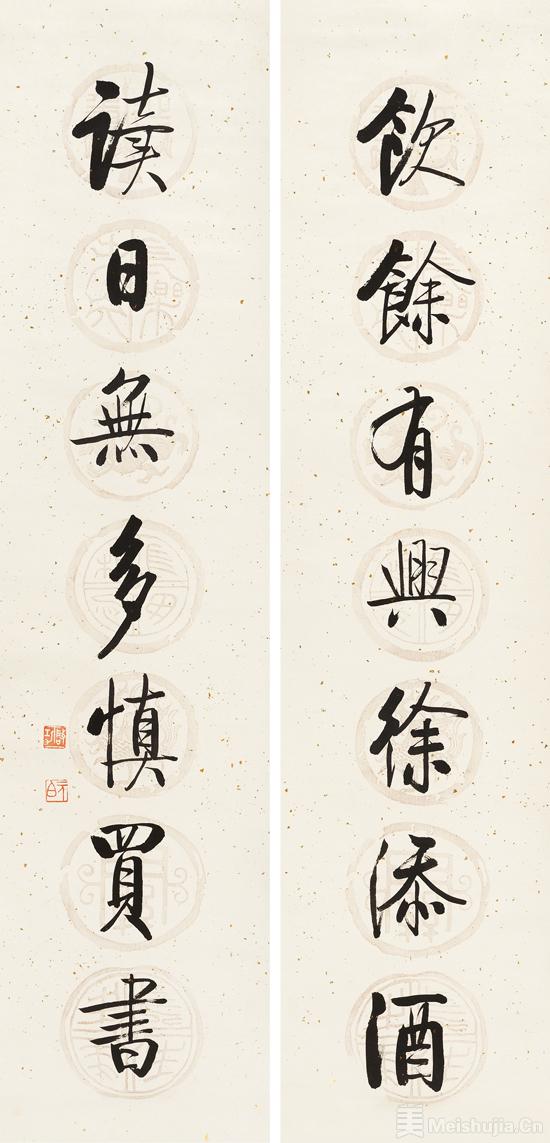 飲餘有興徐添酒
讀日無多慎買書
啓功
元白
美 Meishujia.Cn